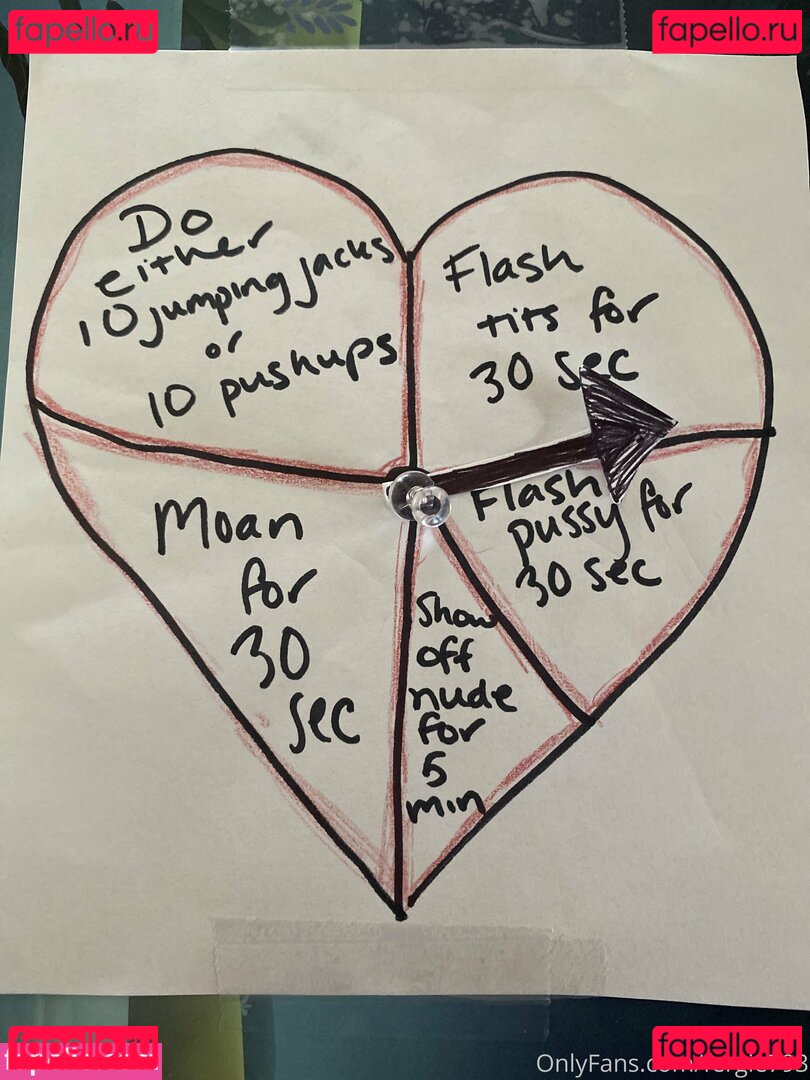 fapello.ru
fapello.ru
Do
either
10 jumping jacks
or
10 pushups
Flash
tits for
30 sec
Flash
pussy for
30 sec
Show
off
nude
for
5
min
Moan
for
30
sec
fapello.ru
fapello.ru
OnlyFans.com/